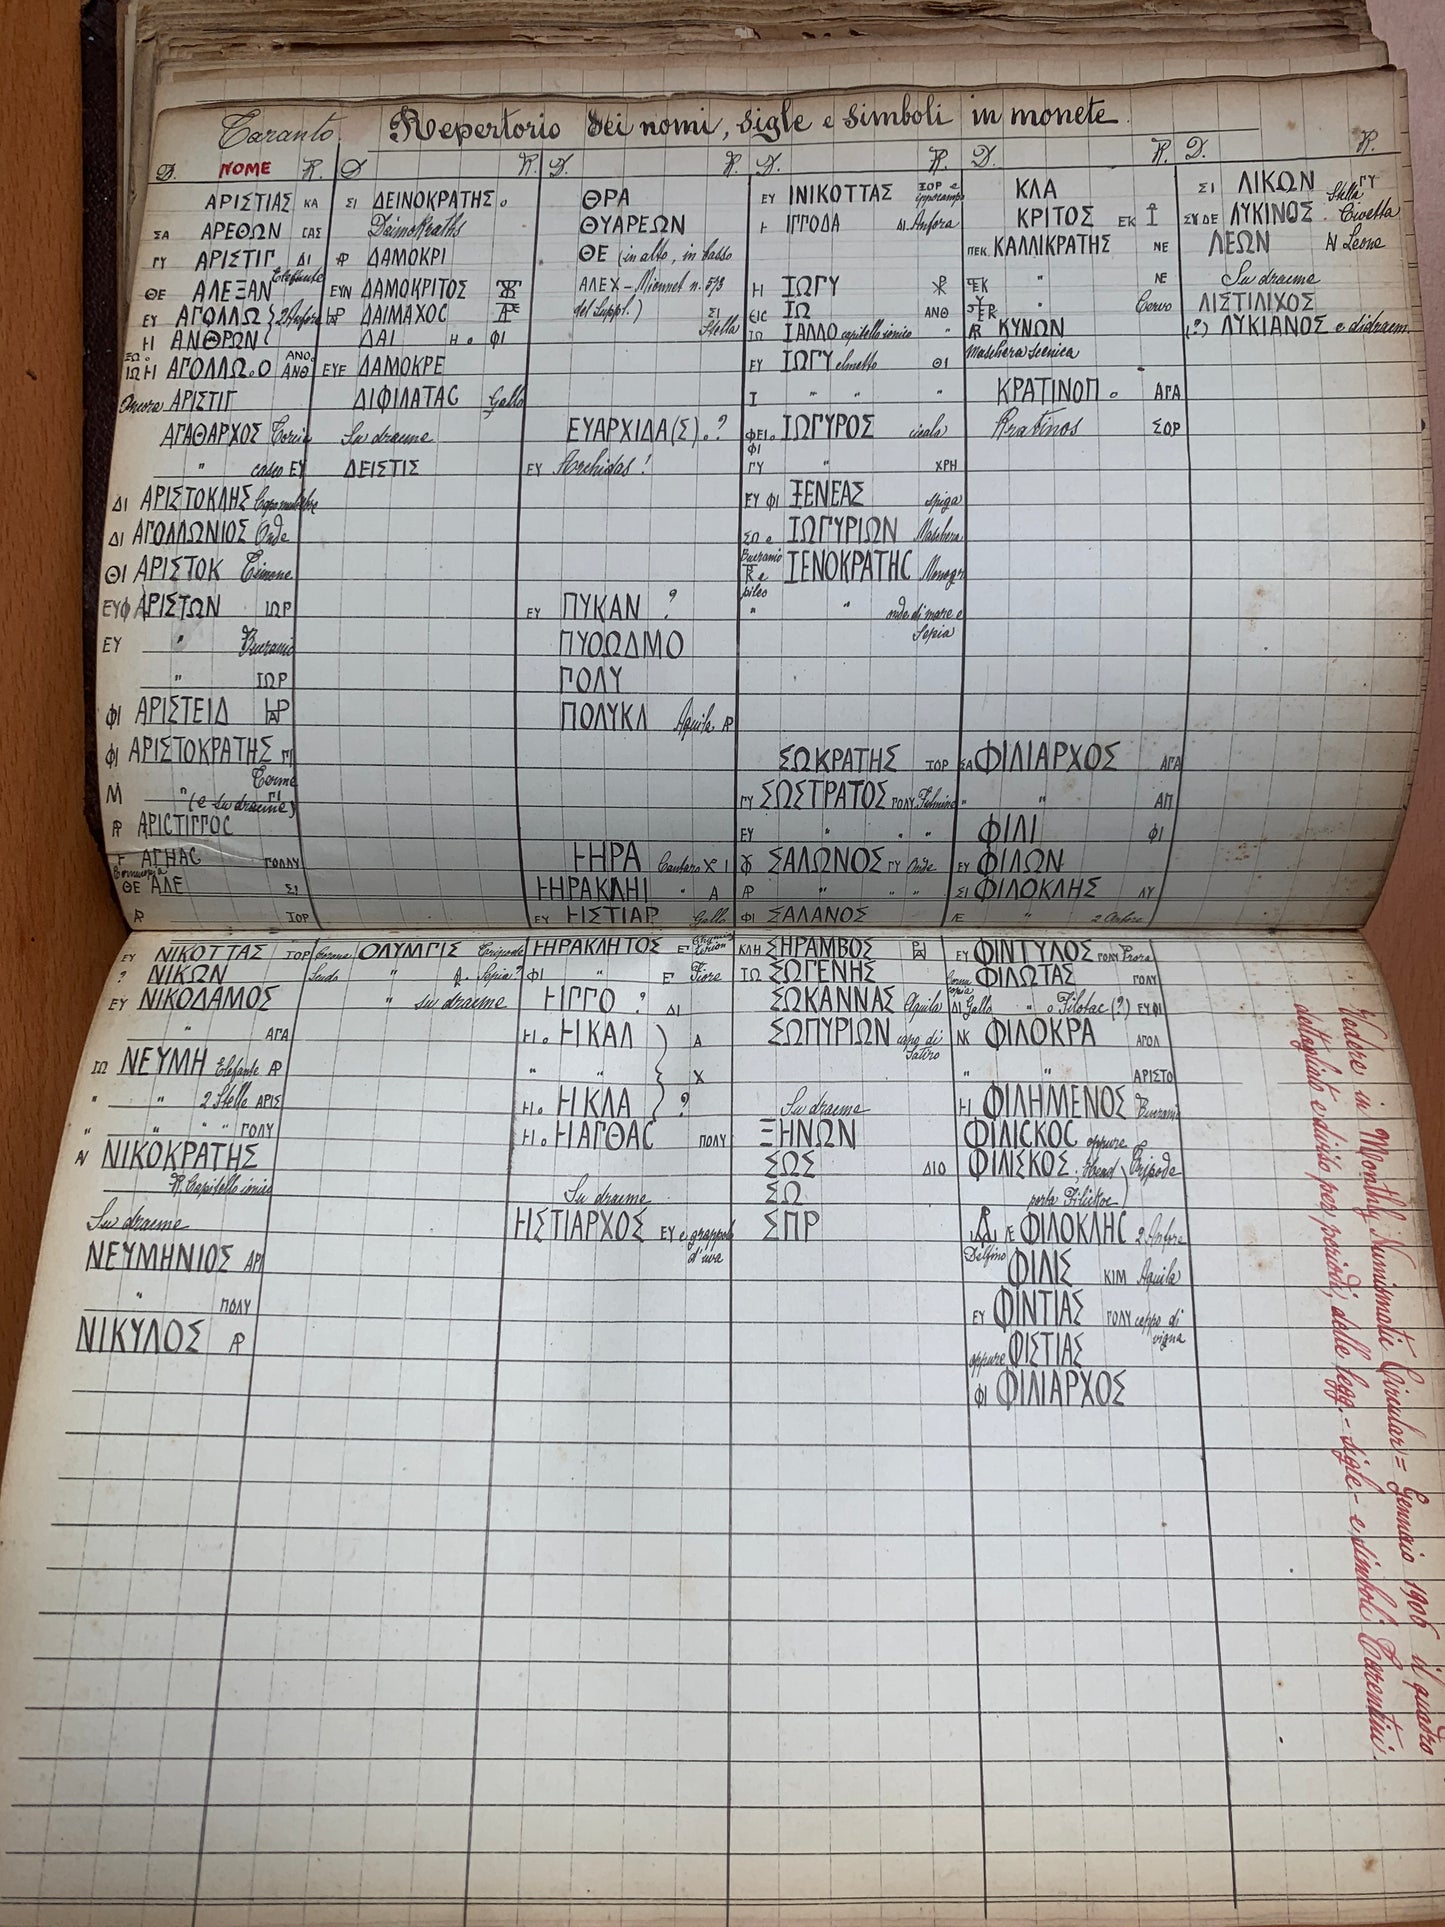 Taranto. Repertorio dei nomi, sigle e simboli in monete.
D. NOME R. D R. D. R. D. R. D. R. D. R.
ΑΡΙΣΤΙΑΣ ΚΑ
ΣΑ ΑΡΕΘΩΝ ΓΑΣ
ΓΥ ΑΡΙΣΤΙΓ ΔΙ
ΘΕ ΑΛΕΞΑΝ Elefante
ΕΥ ΑΓΟΛΛΩ } 2 Anfore
Η ΑΝΘΡΩΝ
ΑΓΟΛΛΩ.Ο ΑΝΟ. ΑΝΘ
Ancora ΑΡΙΣΤΙΓ
ΑΓΑΘΑΡΧΟΣ
" casco ΕΥ
ΔΙ ΑΡΙΣΤΟΚΛΗΣ
ΔΙ ΑΓΟΛΛΩΝΙΟΣ Onde
ΘΙ ΑΡΙΣΤΟΚ Timone
ΕΥΦ ΑΡΙΣΤΩΝ ΙΩΡ
ΕΥ " Bucranio
" ΙΩΡ
ΦΙ ΑΡΙΣΤΕΙΔ
ΦΙ ΑΡΙΣΤΟΚΡΑΤΗΣ ΓΙ
Μ " (e su dracme) ΓΙ
ΑΡΙCΤΙΓΓΟC
F ΑΓΗΑC ΓΟΛΛΥ
ΘΕ ΑΛΕ ΣΙ
ΙΟΡ
ΣΙ ΔΕΙΝΟΚΡΑΤΗΣ o
Deinokraths
ΔΑΜΟΚΡΙ
ΕΥΝ ΔΑΜΟΚΡΙΤΟΣ
ΔΑΙΜΑΧΟΣ
ΔΑΙ Η o ΦΙ
ΕΥΕ ΔΑΜΟΚΡΕ
ΔΙΦΙΛΑΤΑC Gallo
Su dracme
ΔΕΙΣΤΙΣ
ΘΡΑ
ΘΥΑΡΕΩΝ
ΘΕ (in alto, in basso
ΑΛΕΧ - Mionnet n. 573
del Suppl.) ΣΙ
Stella
ΕΥΑΡΧΙΔΑ(Σ).?
ΕΥ Archidas!
ΕΥ ΠΥΚΑΝ ?
ΠΥΘΩΔΜΟ
ΓΟΛΥ
ΠΟΛΥΚΛ Aquila
ͰΗΡΑ Cantaro Χ Ι
ͰΗΡΑΚΛΗΙ " Α
ΕΥ ͰΙΣΤΙΑΡ Gallo
ΕΥ ΙΝΙΚΟΤΤΑΣ ΙΟΡ e ippocampo
Ͱ ΙΓΓΟΔΑ ΔΙ. Anfora
Η ΙΩΓΥ
ΕΙC ΙΩ ΑΝΘ
ΙΩ ΙΑΛΛΟ capitello ionico "
ΕΥ ΙΩΓΥ elmetto ΘΙ
Ι " " "
ΦΕΙ. ΙΩΓΥΡΟΣ cicala
ΦΙ
ΓΥ " ΧΡΗ
ΕΥ ΦΙ ΞΕΝΕΑΣ spiga
ΣΩ e ΙΩΓΥΡΙΩΝ Maschera
Bucranio ΞΕΝΟΚΡΑΤΗC Monogr
pileo
" " onde di mare e
Sepia
ΣΩΚΡΑΤΗΣ ΙΟΡ
ΓΥ ΣΩΣΤΡΑΤΟΣ ΓΟΛΥ. Fulmine
ΕΥ " " "
ΣΑΛΩΝΟΣ ΓΥ Onde
" " "
ΦΙ ΣΑΛΑΝΟΣ
ΚΛΑ
ΚΡΙΤΟΣ ΕΚ
ΠΕΚ. ΚΑΛΛΙΚΡΑΤΗΣ ΝΕ
" ΝΕ
" Corvo
ΚΥΝΩΝ
Maschera scenica
ΚΡΑΤΙΝΟΠ o ΑΓΑ
Kratinos ΣΟΡ
ΣΑ ΦΙΛΙΑΡΧΟΣ ΑΓΑ
" " ΑΠ
ΦΙΛΙ ΦΙ
ΕΥ ΦΙΛΩΝ
ΣΙ ΦΙΛΟΚΛΗΣ ΛΥ
" 2 Anfore
ΣΙ ΛΙΚΩΝ ΓΥ Stella
ΣΥ ΔΕ ΛΥΚΙΝΟΣ Civetta
ΛΕΩΝ Leone
Su dracme
ΛΙΣΤΙΛΙΧΟΣ
(?) ΛΥΚΙΑΝΟΣ e didracm.
ΕΥ ΝΙΚΟΤΤΑΣ ΙΟΡ
? ΝΙΚΩΝ
ΕΥ ΝΙΚΟΔΑΜΟΣ
" ΑΓΑ
ΙΩ ΝΕΥΜΗ Elefante
" " 2 Stelle ΑΡΙΣ
" " " " ΓΟΛΥ
ΝΙΚΟΚΡΑΤΗΣ
R. Capitello ionico
Su dracme
ΝΕΥΜΗΝΙΟΣ ΑΡΙ
" ΠΟΛΥ
ΝΙΚΥΛΟΣ
Corona ΟΛΥΜΓΙΣ Tripode
Scudo " R. Sepia?
" su dracme
ͰΗΡΑΚΛΗΤΟΣ
ΦΙ " Fiore
ͰΙΓΓΟ ? ΔΙ
Η. ͰΙΚΑΛ Α
" " Χ
Η. ͰΙΚΛΑ ?
Η. ͰΙΑΓΘΑC ΠΟΛΥ
Su dracme
ͰΙΣΤΙΑΡΧΟΣ ΕΥ e grappolo
d'uva
ΚΛΗ ΣΗΡΑΜΒΟΣ
ΙΩ ΣΩΓΕΝΗΣ
ΣΩΚΑΝΝΑΣ Aquila
ΣΩΠΥΡΙΩΝ capo di
Satiro
Su dracme
ΞΗΝΩΝ
ΣΩΣ ΔΙΟ
ΣΩ
ΣΠΡ
ΕΥ ΦΙΝΤΥΛΟΣ ΓΟΛΥ Prora
ΦΙΛΩΤΑΣ ΓΟΛΥ
ΔΙ Gallo " o Filotac (?) ΕΥΦΙ
ΝΚ ΦΙΛΟΚΡΑ ΑΓΟΛ
" " ΑΡΙΣΤΟ
Η ΦΙΛΗΜΕΝΟΣ Bucranio
ΦΙΛΙCΚΟC oppure
ΦΙΛΙΣΚΟΣ. Tripode
porta Filickoc
ΦΙΛΟΚΛΗC 2 Anfore
Delfino ΦΙΛΙΣ ΚΙΜ Aquila
ΕΥ ΦΙΝΤΙΑΣ ΓΟΛΥ ceppo di
vigna
oppure ΦΙΣΤΙΑΣ
ΦΙ ΦΙΛΙΑΡΧΟΣ
Vedere in Monthly Numismatic Circular = Gennaio 1906 il quadro
dettagliato e diviso per periodi, delle legg. - sigle - e simboli Tarentini.